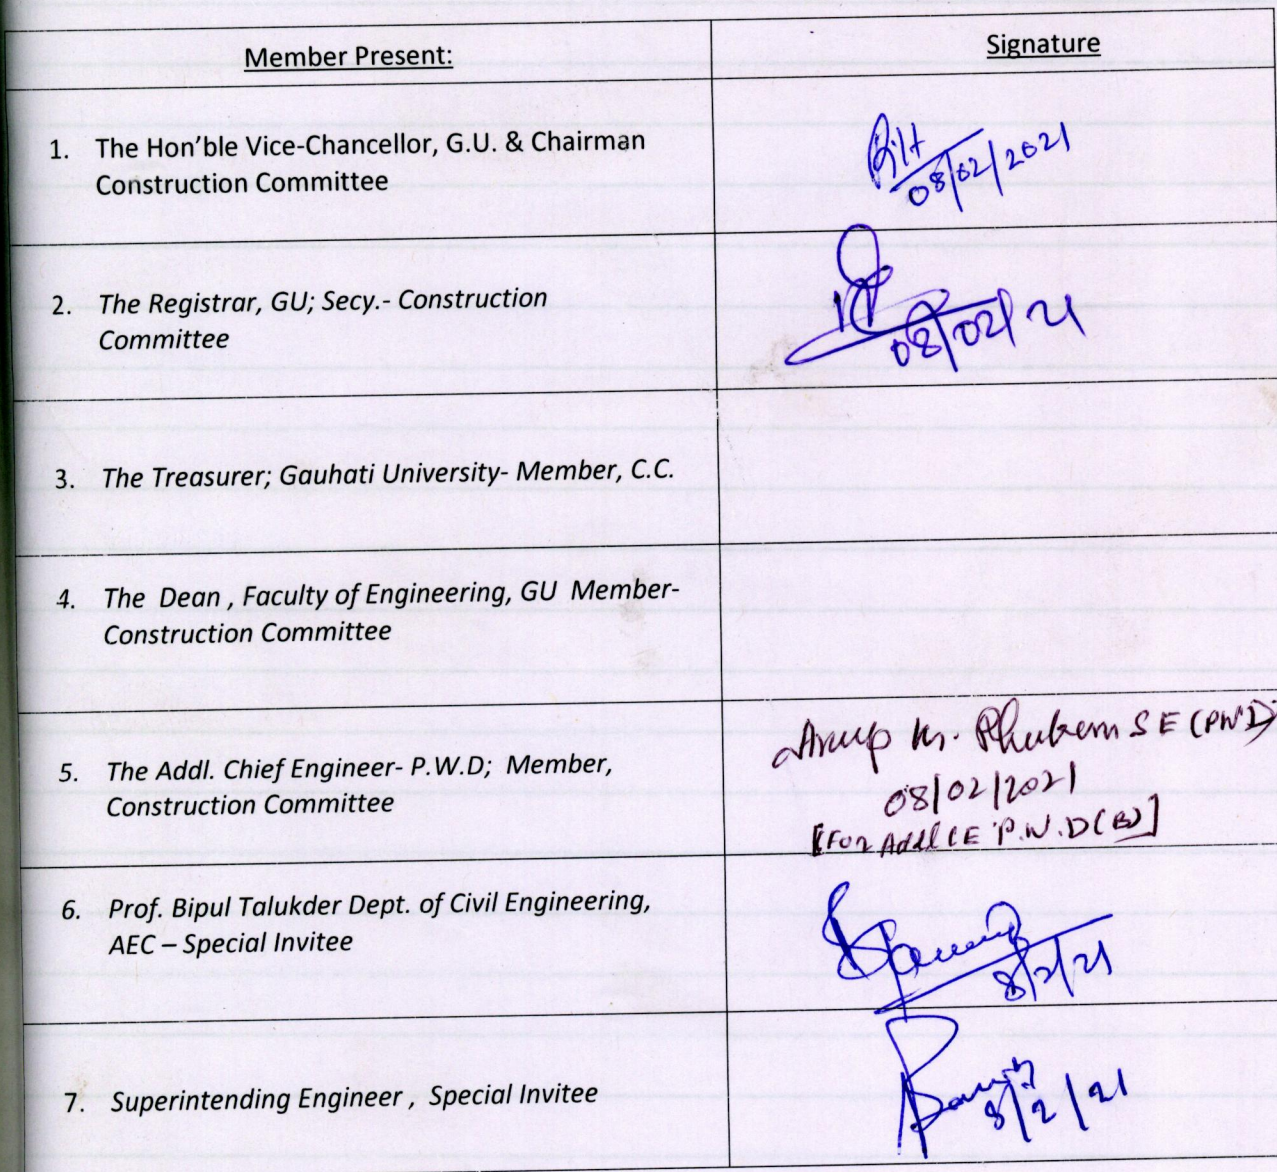 Member Present:
Signature
1. The Hon'ble Vice-Chancellor, G.U. & Chairman
Construction Committee
08/02/2021
2. The Registrar, GU; Secy.- Construction
Committee
08/02/21
3. The Treasurer; Gauhati University- Member, C.C.
4. The Dean , Faculty of Engineering, GU Member-
Construction Committee
5. The Addl. Chief Engineer- P.W.D; Member,
Construction Committee
Arup Kr. Phukan SE (PWD)
08/02/2021
[For Addl CE P.W.D(B)]
6. Prof. Bipul Talukder Dept. of Civil Engineering,
AEC – Special Invitee
8/2/21
7. Superintending Engineer , Special Invitee
8/2/21